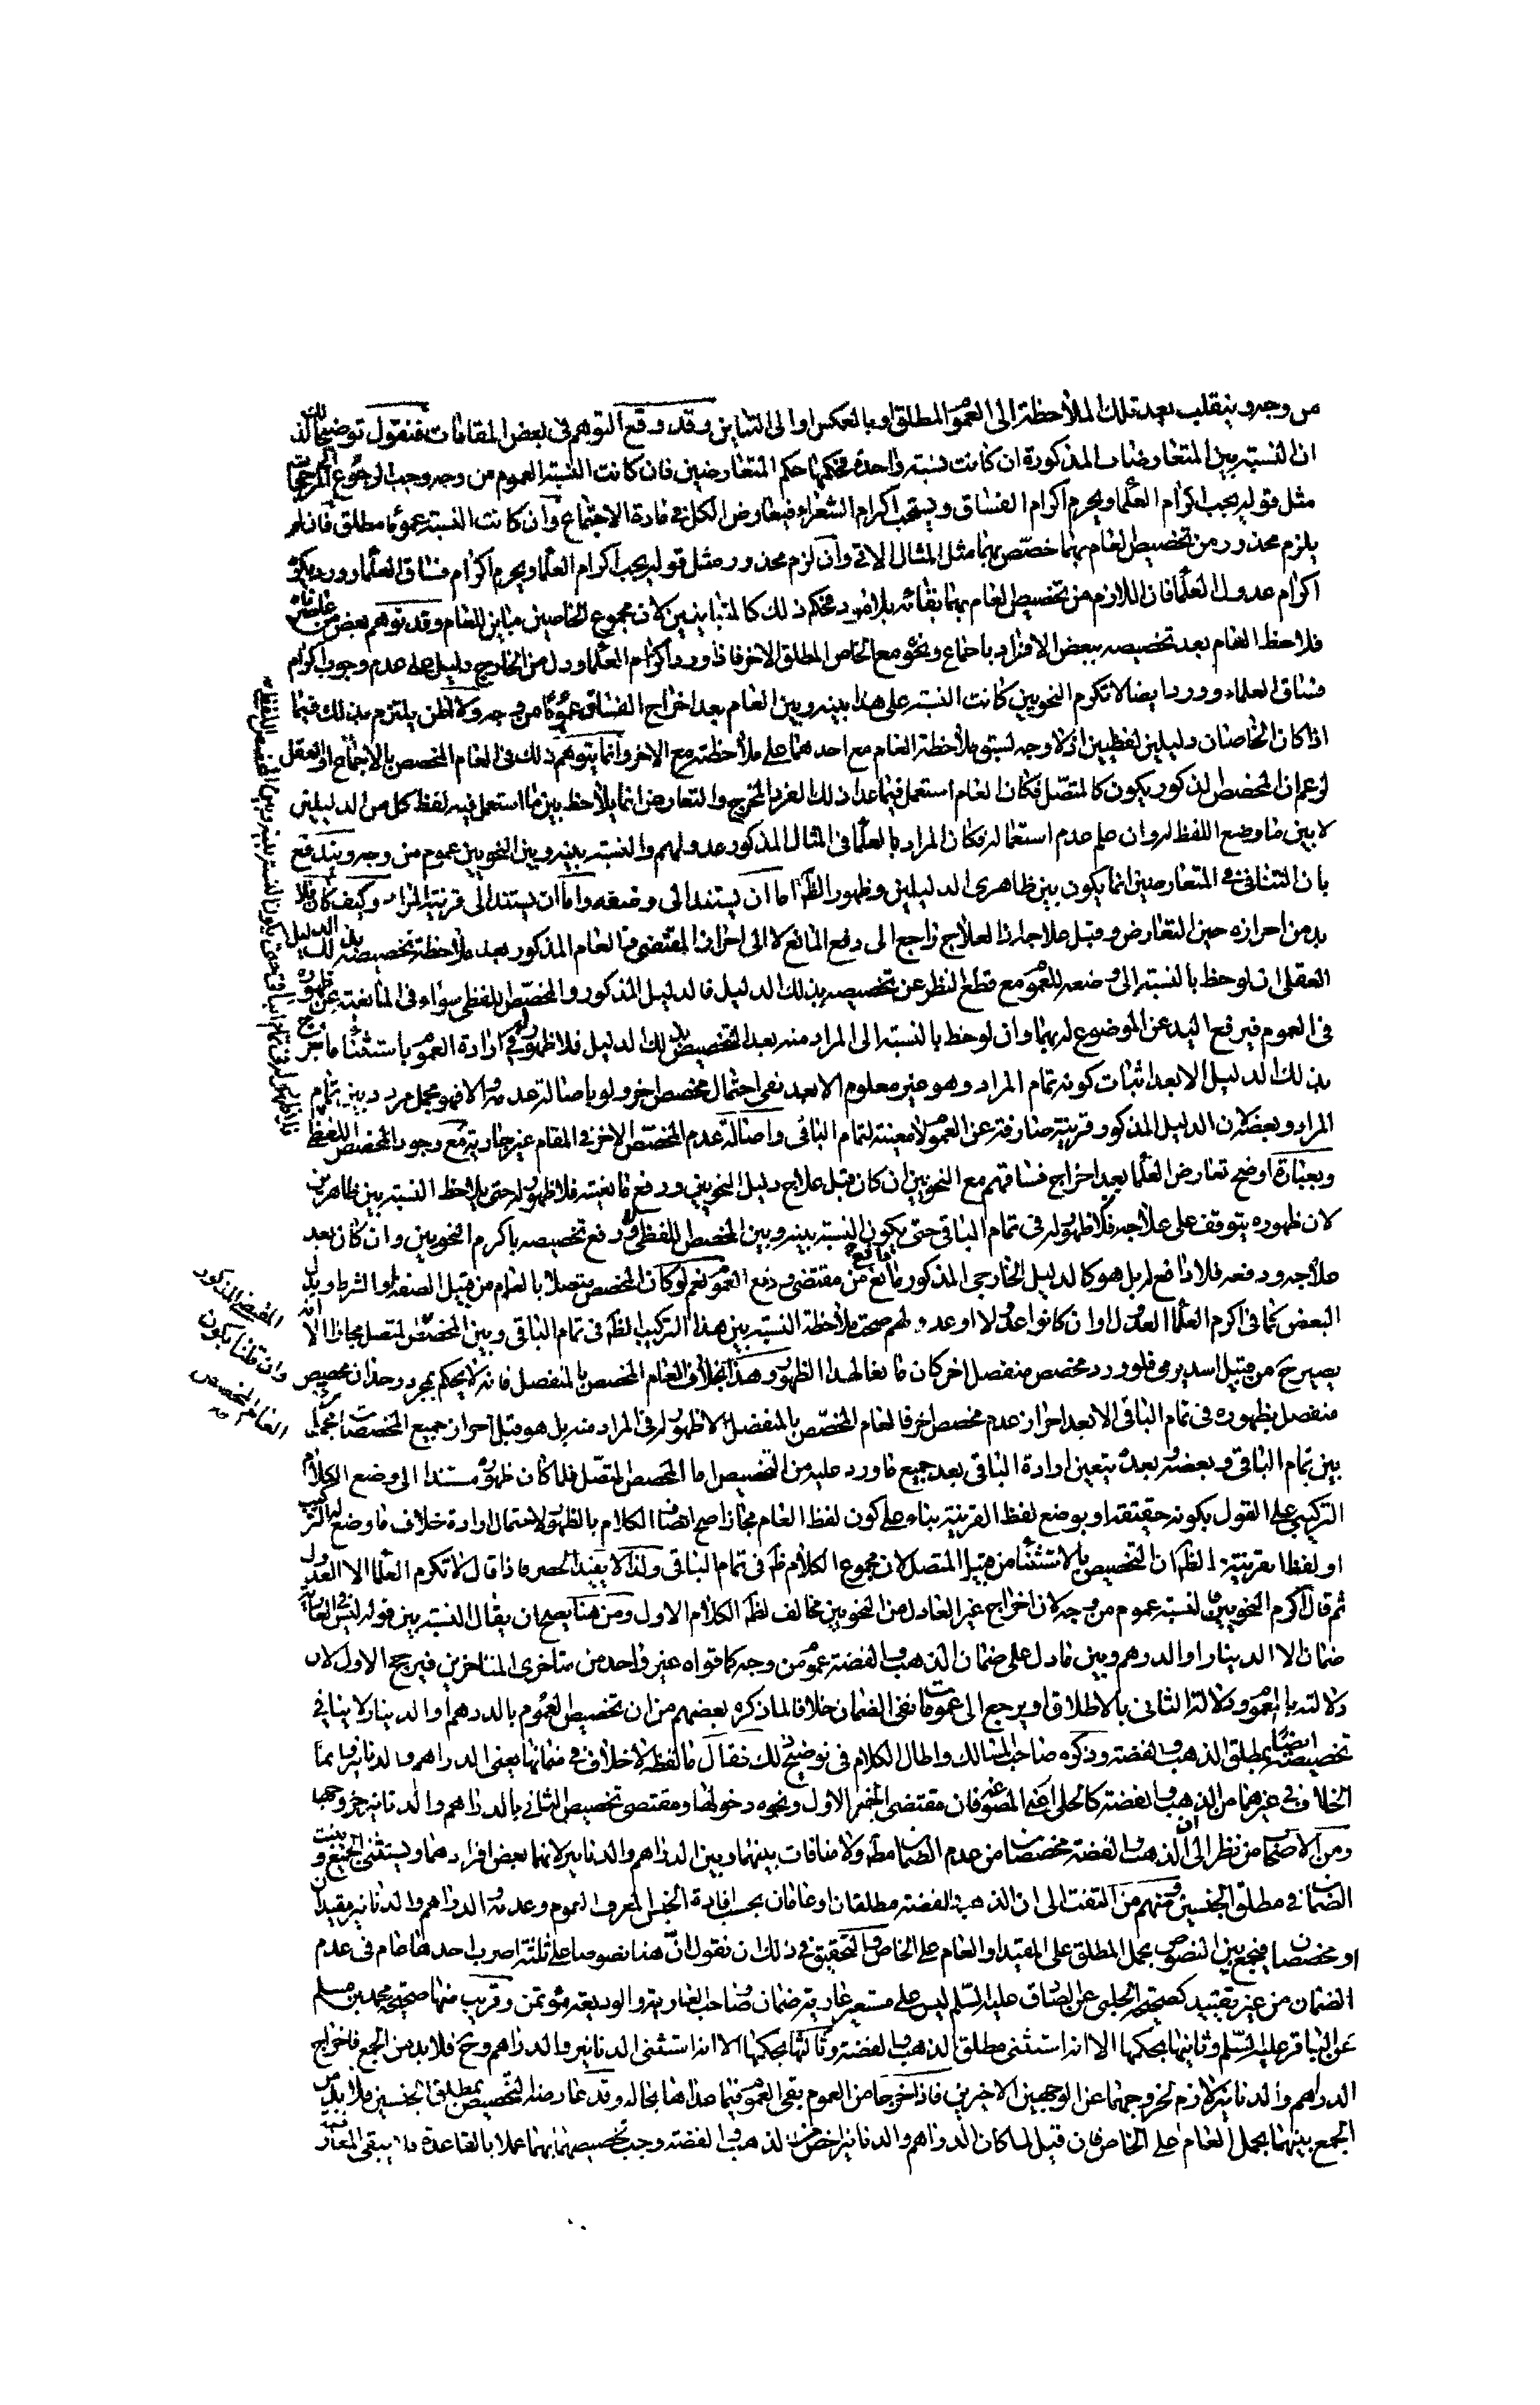 من وجه وينقلب بعد تلك الملاحظة الى العموم المطلق او بالعكس او الى التباين وقد وقع التوهم فى بعض المقامات فنقول توضيحا لذلك
ان النسبة بين المتعارضات المذكورة ان كانت نسبة واحدة فحكمها حكم المتعارضين فان كانت النسبة العموم من وجه وجب الرجوع الى المرجحات
مثل قوله يجب اكرام العلماء ويحرم اكرام الفساق ويستحب اكرام الشعراء فيتعارض الكل فى مادة الاجتماع وان كانت النسبة عموما مطلقا فان لم
يلزم محذور من تخصيص العام بهما خصص بهما مثل المثال الاتى وان لزم محذور مثل قوله يجب اكرام العلماء ويحرم اكرام فساق العلماء وورد يكره
اكرام عدول العلماء فان اللازم من تخصيص العام بهما بقائه بلا مورد فحكم ذلك كالمتباينين لان مجموع الخاصين مباين للعام وقد توهم بعض من عاصرناه
فلاحظ العام بعد تخصيصه ببعض الافراد باجماع ونحوه مع الخاص المطلق الاخر فاذا ورد اكرم العلماء ودل من الخارج دليل على عدم وجوب اكرام
فساق العلماء وورد ايضا لا تكرم النحويين كانت النسبة على هذا بينه وبين العام بعد اخراج الفساق عموما من وجه ولا اظن يلتزم بذلك فيما
اذا كان الخاصان دليلين لفظيين اذ لا وجه لسبق ملاحظة العام مع احدهما على ملاحظته مع الاخر وانما يتوهم ذلك فى العام المخصص بالاجماع او العقل
لزعم ان المخصص المذكور يكون كالمتصل فكان العام استعمل فيما عدا ذلك الفرد المخرج والتعارض انما يلاحظ بين ما استعمل فيه لفظ كل من الدليلين
لا بين ما وضع اللفظ له وان علم عدم استعماله فكان المراد بالعلماء فى المثال المذكور عدولهم والنسبة بينه وبين النحويين عموم من وجه ويندفع
بان التنافى فى المتعارضين انما يكون بين ظاهرى الدليلين وظهور الظاهر اما ان يستند الى وضعه واما ان يستند الى قرينة المراد وكيف كان فلا
بد من احرازه حين التعارض وقبل علاجه اذ العلاج راجع الى دفع المانع لا الى احراز المقتضى والعام المذكور بعد ملاحظة تخصيصه بذلك الدليل
العقلى ان لوحظ بالنسبة الى وضعه للعموم مع قطع النظر عن تخصيصه بذلك الدليل فالدليل المذكور والمخصص اللفظى سواء فى المانعية عن ظهوره
فى العموم فيرفع اليد عن الموضوع له بهما وان لوحظ بالنسبة الى المراد منه بعد التخصيص بذلك الدليل فلا ظهور له فى ارادة العموم باستثناء ما خرج
بذلك الدليل الا بعد اثبات كونه تمام المراد وهو غير معلوم الا بعد نفى احتمال مخصص اخر ولو باصالة عدمه والا فهو مجمل مردد بين تمام
المراد وبعضه لان الدليل المذكور قرينة صارفة عن العموم لا معينة لتمام الباقى واصالة عدم المخصص الاخر فى المقام غير جارية مع وجود المخصص اللفظى
وبعبارة اوضح تعارض العلماء بعد اخراج فساقهم مع النحويين ان كان قبل علاج دليل النحويين ورفع مانعيته فلا ظهور له حتى يلاحظ النسبة بين ظاهرين
لان ظهوره يتوقف على علاجه فلا ظهور له فى تمام الباقى حتى يكون النسبة بينه وبين المخصص اللفظى ورفع تخصيصه باكرم النحويين وان كان بعد
علاجه ودفعه فلا دافع له بل هو كالدليل الخارجى المذكور مانع عن مقتضى وضع العموم نعم لو كان المخصص متصلا بالعام من قبيل الصفة او الشرط او بدل
البعض كما فى اكرم العلماء العدول او ان كانوا عدولا او عدولهم صحت ملاحظة النسبة بين هذا التركيب الظاهر فى تمام الباقى وبين المخصص المتصل مجازا الا انه
يصير ح من قبيل اسد يرمى فلو ورد مخصص منفصل اخر كان مانعا لهذا الظهور وهذا بخلاف العام المخصص بالمنفصل فانه لا يحكم بمجرد وجدان مخصص
منفصل بظهوره فى تمام الباقى الا بعد احراز عدم مخصص اخر فالعام المخصص بالمنفصل لا ظهور له فى المراد منه بل هو قبل احراز جميع المخصصات مجمل
بين تمام الباقى وبعضه وبعده يتعين ارادة الباقى بعد جميع ما ورد عليه من التخصيص اما المخصص المتصل فلما كان ظهوره مستندا الى وضع الكلام
التركيبى على القول بكونه حقيقة او بوضع لفظ القرينة بناء على كون لفظ العام مجازا صح اتصاف الكلام بالظهور لاحتمال ارادة خلاف ما وضع له التركيب
او لفظ القرينة الظاهر ان التخصيص بالاستثناء من قبيل المتصل لان مجموع الكلام ظاهر فى تمام الباقى ولذا لا يفيد الحصر فاذا قال لا تكرم العلماء الا العدول
ثم قال اكرم النحويين فالنسبة عموم من وجه لان اخراج غير العادل من النحويين مخالف لظاهر الكلام الاول ومن هنا يصح ان يقال النسبة بين قوله ليس فى العارية
ضمان الا الدينار او الدرهم وبين ما دل على ضمان الذهب والفضة عموم من وجه كما قواه غير واحد من متاخرى المتاخرين فيرجح الاول لان
دلالته بالعموم ودلالة الثانى بالاطلاق او يرجع الى عمومات نفى الضمان خلافا لما ذكره بعضهم من ان تخصيص العموم بالدرهم او الدينار لا ينافى
تخصيصه ايضا بمطلق الذهب والفضة وذكره صاحب المسالك واطال الكلام فى توضيح ذلك فقال ما لفظه لا خلاف فى ضمانهما يعنى الدراهم والدنانير وانما
الخلاف فى غيرهما من الذهب والفضة كالحلى اعنى المصوغ فان مقتضى الخبر الاول ونحوه دخولها ومقتضى تخصيص الثانى بالدراهم والدنانير خروجهما
ومن الاصحاب من نظر الى ان الذهب والفضة مخصصان من عدم الضمان مطلقا ولا منافات بينهما وبين الدراهم والدنانير لانهما بعض افرادهما ويستثنى الجميع ويثبت
الضمان فى مطلق الجنسين ومنهم من التفت الى ان الذهب والفضة مطلقان او عامان بحسب افادة الجنس المعرف العموم وعدمه والدراهم والدنانير مقيدان
او مخصصان فيجمع بين النصوص بحمل المطلق على المقيد او العام على الخاص والتحقيق فى ذلك ان نقول ان هنا نصوصا على ثلثة اضرب احدها عام فى عدم
الضمان من غير تقييد كصحيحة الحلبى عن الصادق عليه السلم ليس على مستعير عارية ضمان وصاحب العارية والوديعة مؤتمن وقريب منها صحيحة محمد بن مسلم
عن الباقر عليه السلم وثانيها بحكمها الا انه استثنى مطلق الذهب والفضة وثالثها بحكمها الا انه استثنى الدنانير والدراهم وح فلا بد من الجمع فاخراج
الدراهم والدنانير لازم لخروجهما عن الوجهين الاخيرين فاذا خرجا من العموم بقى العموم فيما عداهما بحاله وقد عارضه التخصيص بمطلق الجنسين فلا بد من
الجمع بينهما بحمل العام على الخاص فان قيل لما كان الدراهم والدنانير اخص من الذهب والفضة وجب تخصيصهما بهما عملا بالقاعدة فلا يبقى المعارضة
الفرض المذكور
وان قلنا بكون
العام المخصص